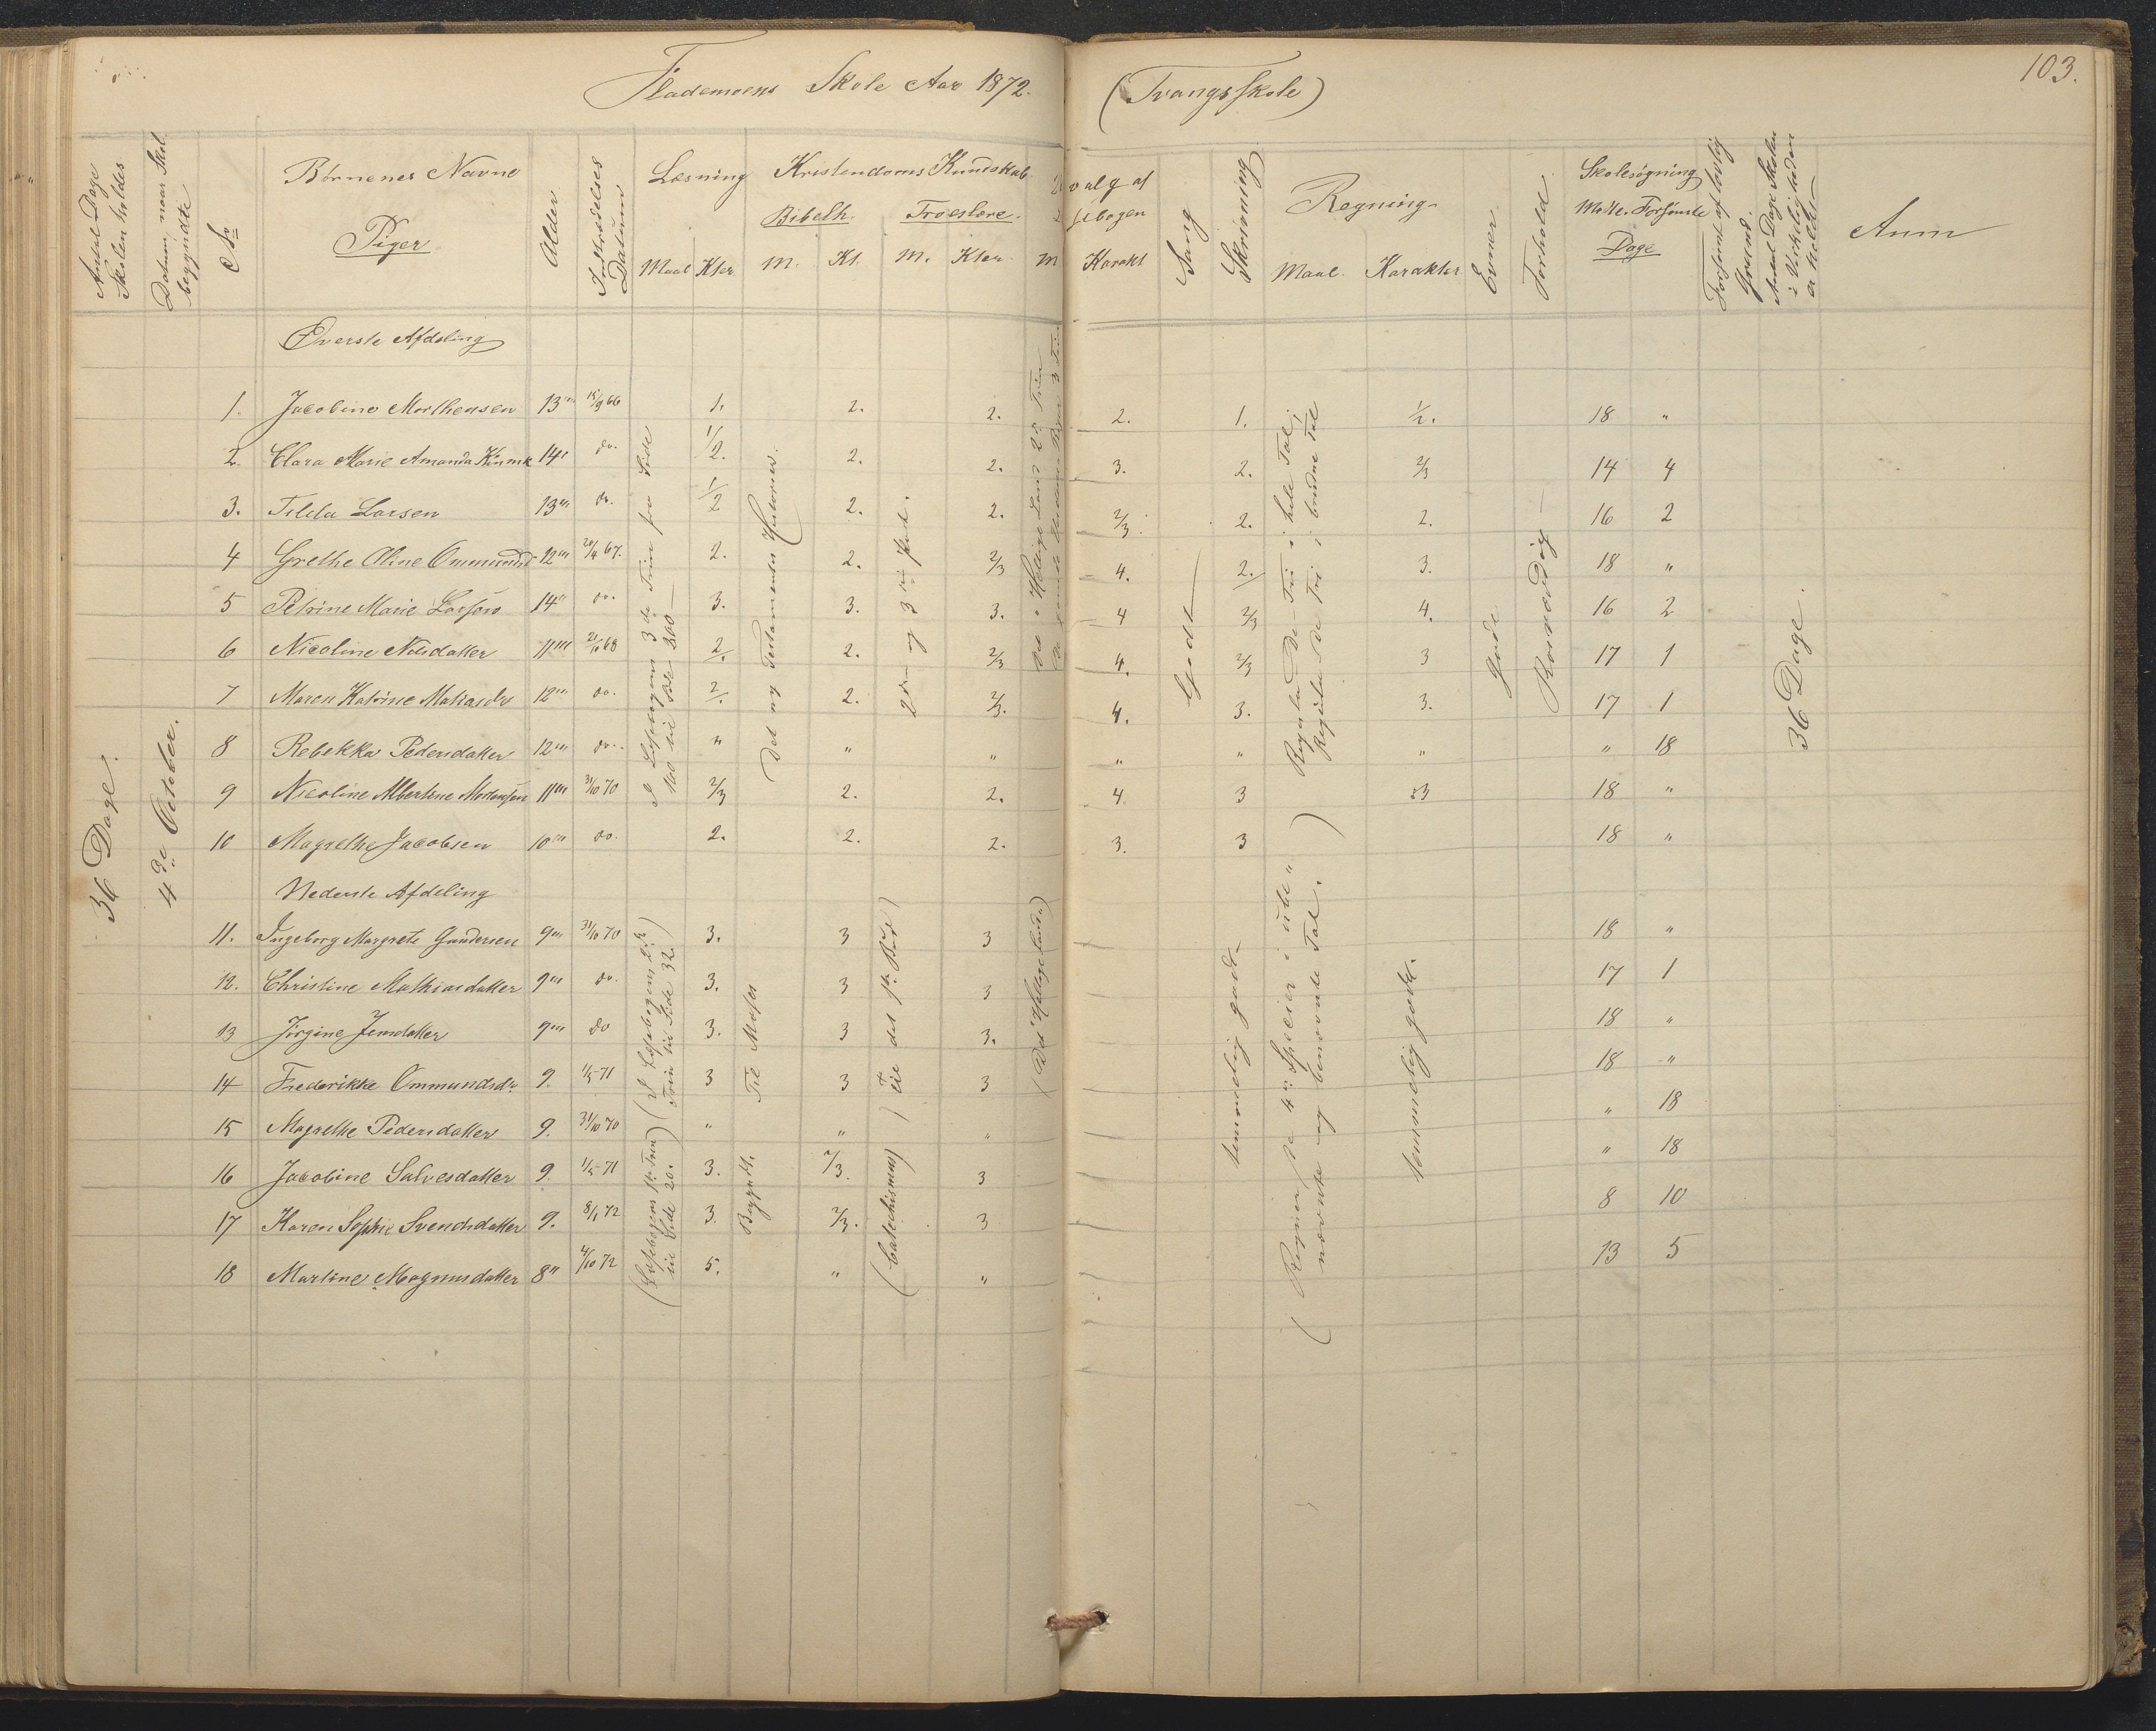 Flademoens Skole Aar 1872. (Tvangsskole) 103.
Antal Dage Skolen holdes
Datum, naar Skol. begyndte
Nr
Børnenes Navne
Piger
Alder
Indtrædelses Datum
Læsning
Maal Kter
Kristendoms Kundskab
Bibelh. Troeslære.
M. Kt. M. Kter
M Karakt
Sang
Skrivning
Regning
Maal. Karakter
Evner
Forhold
Skolesøgning
Mødte. Forsømte
Dage
Forsømt af lovlig Grund
Antal Dage Skolen i Virkeligheden er holdt
Anm
Øverste Afdeling
1. Jacobine Morthensen 13 15/9 66 1. 2. 2. 2. 1. 1/2. 18 "
2. Clara Marie Amanda 14 do. 1/2. 2. 2. 3. 2. 2/3 14 4
3. Tilda Larsen 13 do. 1/2 2. 2. 2/3. 2. 2. 16 2
4 Grethe Oline Ommundsd 12 20/4 67. 2. 2. 2/3 4. 2. 3. 18 "
5 Petrine Marie 14 do. 3. 3. 3. 4 2/3 4. 16 2
6 Nicoline Nilsdatter 11 21/10 68 2/. 2. 2/3 4. 2/3 3 17 1
7 Maren Katrine 12 do. 2/. 2. 2/3. 4. 3. 3. 17 1
8 Rebekka Pedersdatter 12 do. " " " " " " " 18
9 Nicoline Albertine Mortensen 11 31/10 70 2/3 2. 2. 4 3 3 18 "
10 Magrethe Jacobsen 10 do. 2. 2. 2. 3. 3 18 "
Nederste Afdeling
11. Ingeborg Margrete Gundersen 9 31/10 70 3. 3 3 18 "
12. Christine Mathiasdatter 9 do. 3. 3 3 17 1
13 Jørgine Jensdatter 9 do 3. 3 3. 18 "
14 Frederikke Ommundsdr. 9. 1/5 71 3 3 3 18 "
15 Magrethe Pedersdatter 9. 31/10 70 " " " " 18
16 Jacobine Salvesdatter 9. 1/5 71 3. 2/3. 3 " 18
17 Karen Sophie Svendsdatter 9. 8/1 72 3. 2/3. 3 8 10
18 Martine Magnusdatter 8" 4/10 72 5. " " 13 5
36 Dage.
4de October.
I Læsebogen 3die Trin fra Side
100 til Side 200 —
Det ny Testamentes Historier.
2den og 3die Part.
Godt —
i hele Tal,
i brudne Tal
Gode
Rosværdig —
36 Dage.
(I Læsebogens 2det
Trin til Side 32.)
(Læsebogens 1ste Trin
til Side 20.)
Til Moses
Begyndt.
(til det 1ste Bud)
(Catechismus)
(Det Hellige Land.)
temmelig godt —
(Regner de 4 Specier i ube-
nævnte og benævnte Tal.)
temmelig godt.